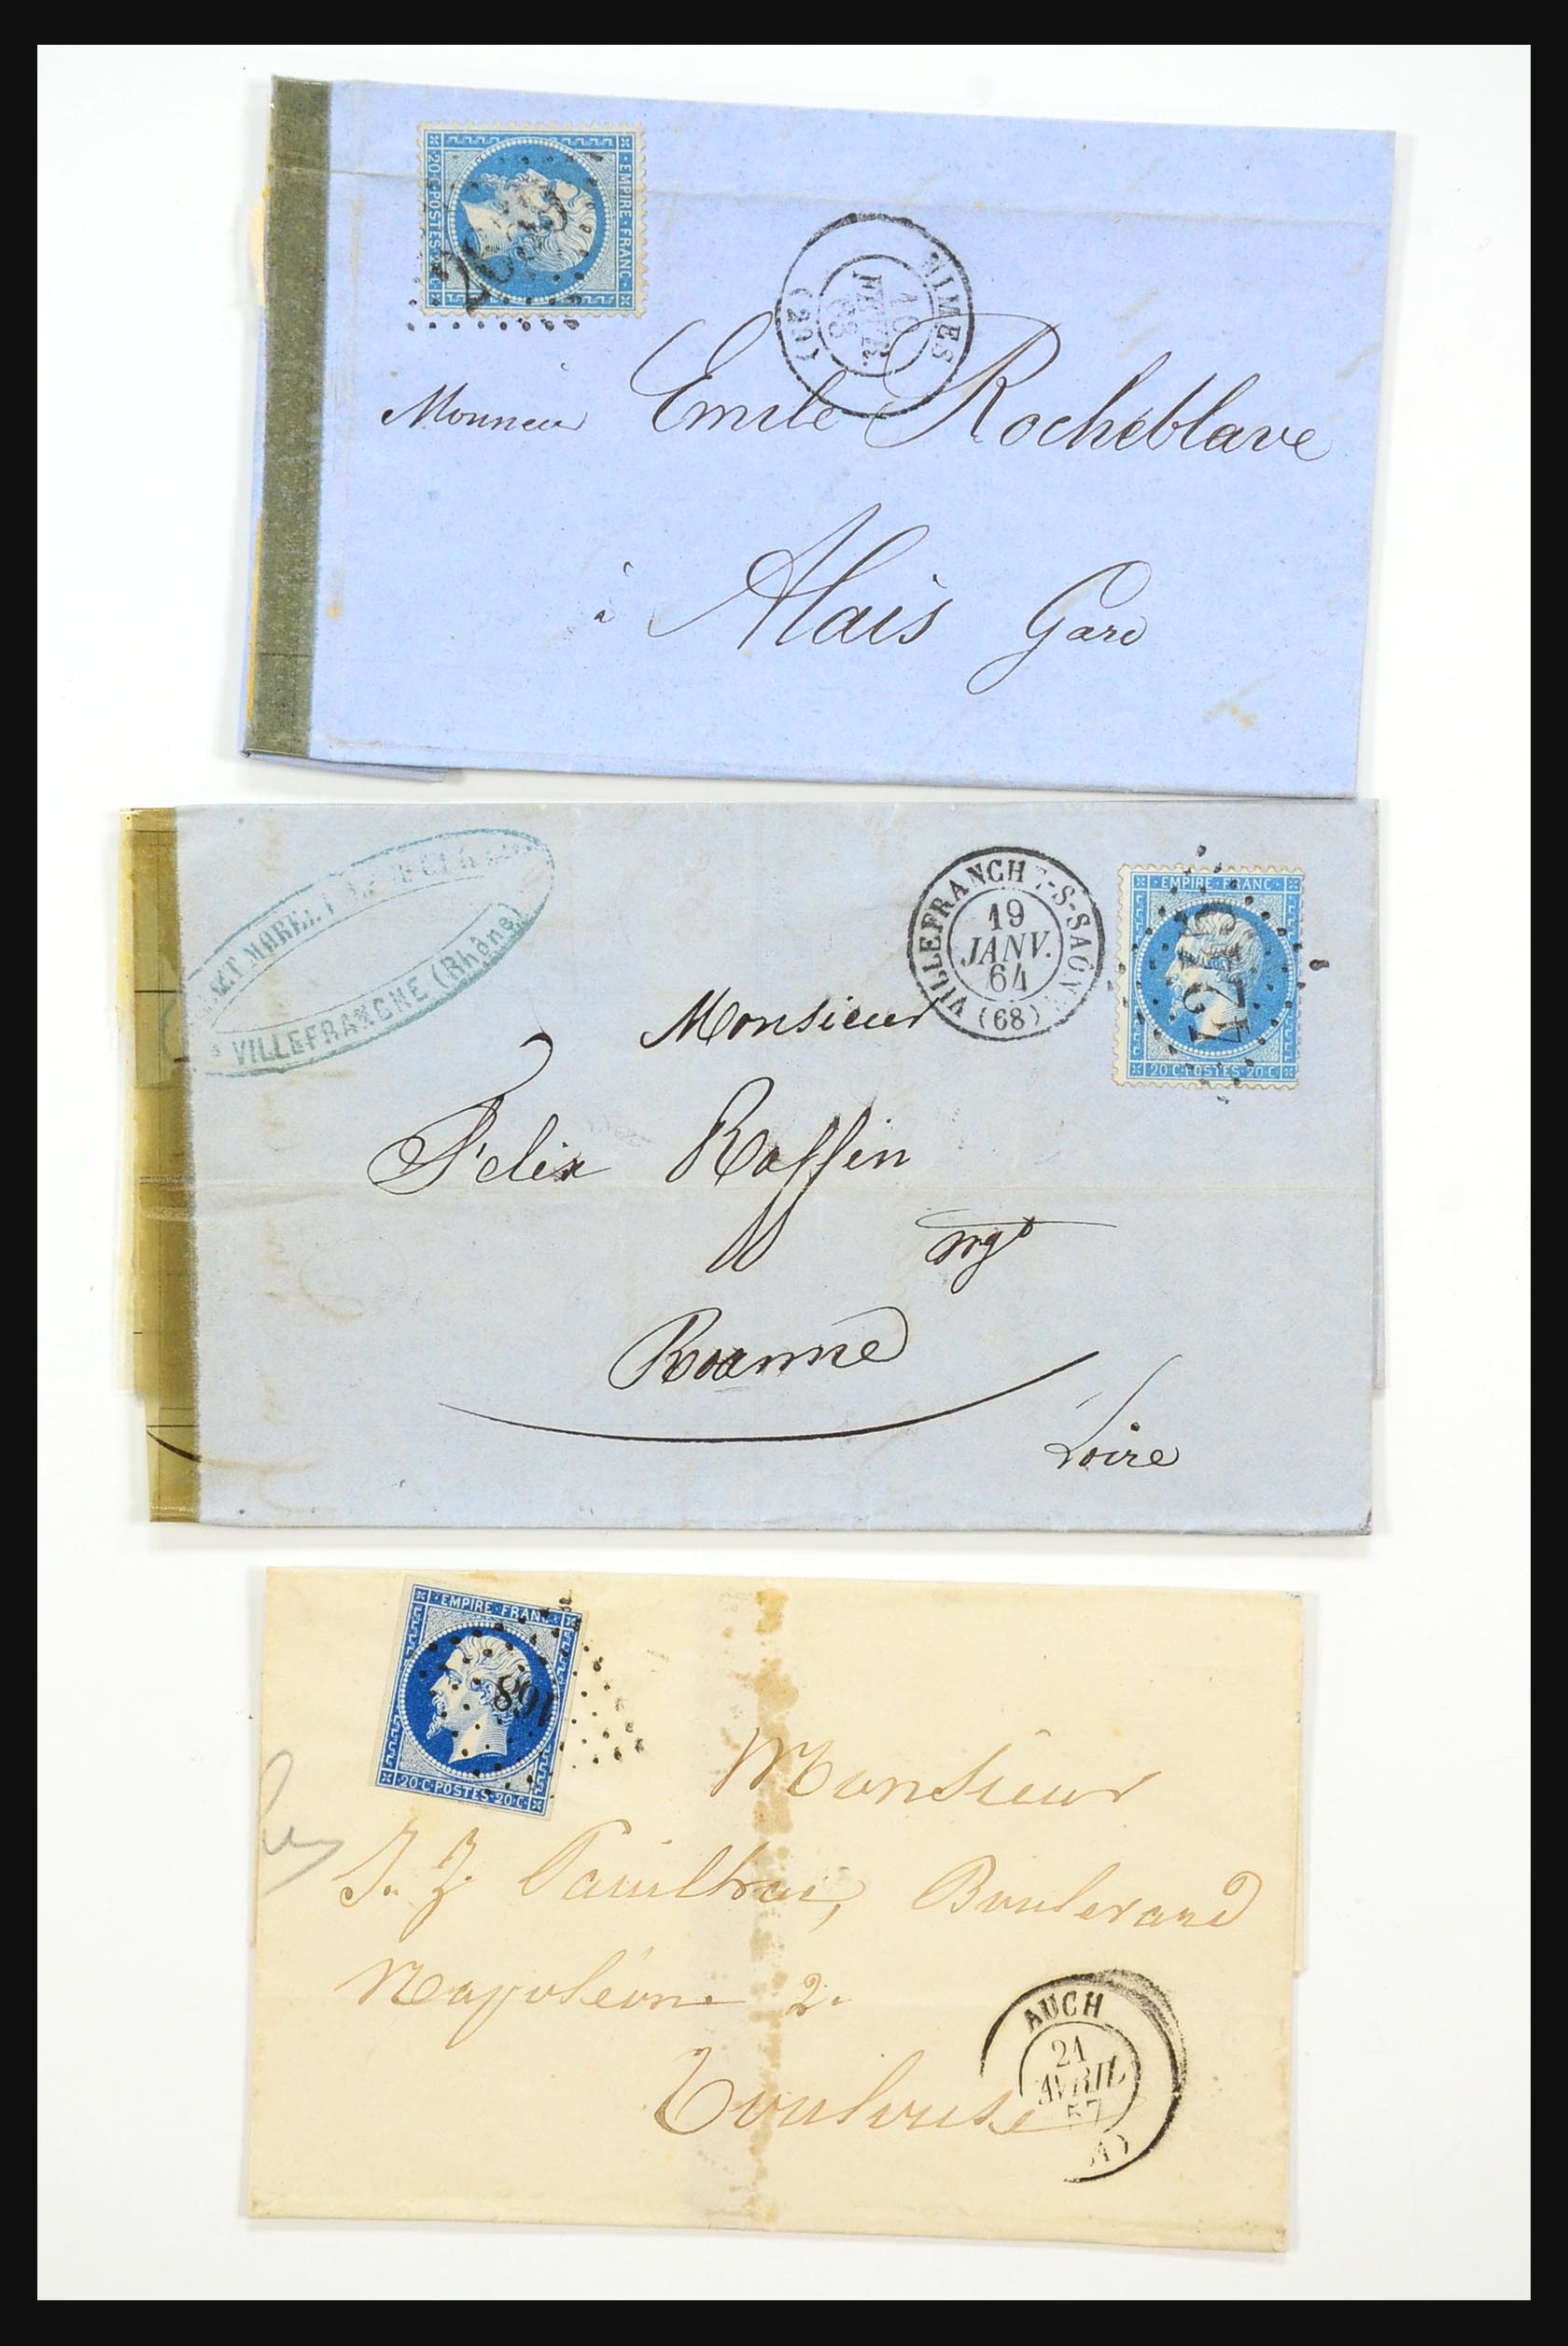 EMPIRE · FRANC
20·C·POSTES·20·C
NIMES
10
FEVR.
63
(29)
Monsieur Emile Rocheblave
à Alais Gard
VILLEFRANCHE (Rhône)
VILLEFRANCHE-S-SAÔNE
19
JANV.
64
(68)
EMPIRE · FRANC
4245
20·C·POSTES·20·C
Monsieur
Felix Raffin
ngt
Roanne
Loire
EMPIRE · FRANC
168
20·C·POSTES·20·C
Monsieur
Boulevard
Napoléon 2.
Toulouse
AUCH
21
AVRIL
57